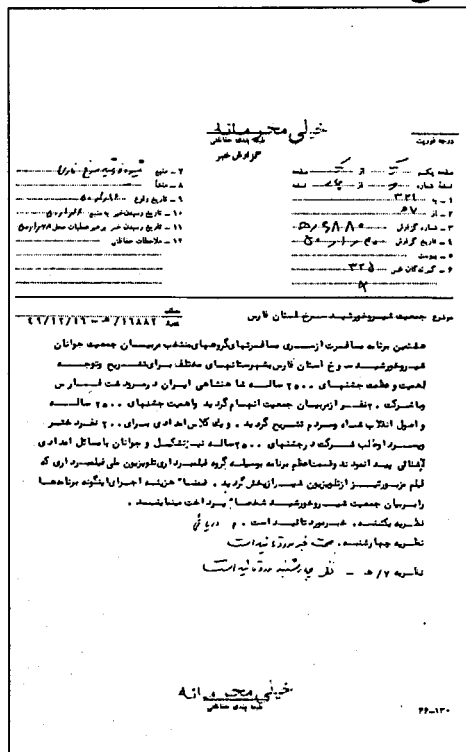 خیلی محرمانه
طبقه بندی حفاظتی
گزارش خبر
درجه فوریت
صفحه یکم از یک صفحه
نسخه شماره از چهار نسخه
۱ - به ۳۲۱
۲ - از ه ۷
۳ - شماره گزارش
۴ - تاریخ گزارش
۵ - پیوست
۶ - گیرندگان خبر ۳۲۵
۷ - منبع
۸ - منشأ
۹ - تاریخ وقوع
۱۰ - تاریخ رسیدن خبر به منبع
۱۱ - تاریخ رسیدن خبر به رهبر عملیات محل
۱۲ - ملاحظات حفاظتی
موضوع جمعیت شیروخورشید سرخ استان فارس
هشتمین برنامه مسافرت از سری مسافرتهای گروههای منتخب مربیان جمعیت جوانان
شیروخورشید سرخ استان فارس بشهرستانهای مختلف برای تشریح وتوجه
اهمیت و عظمت جشنهای ۲۵۰۰ ساله شاهنشاهی ایران در مرودشت فارس
وباشرکت ۲۰ نفر از مربیان جمعیت انجام گردید واهمیت جشنهای ۲۵۰۰ ساله
و اصول انقلاب شاه ومردم تشریح گردید . و یک کلاس امدادی برای ۲۰۰ نفر دختر
وپسر داوطلب شرکت در جشنهای ۲۵۰۰ ساله نیز تشکیل و جوانان با مسائل امدادی
آشنائی پیدا نمودند وضمنا عظم برنامه بوسیله گروه فیلمبرداری تلویزیون ملی فیلمبرداری که
فیلم مزبور نیز از تلویزیون شیراز پخش گردید . ضمنا" هزینه اجرای اینگونه برنامه‌ها
را مربیان جمعیت شیروخورشید شخصا" پرداخت مینمایند .
نظریه یکشنبه . خبر مورد تائید است . م دریائی
نظریه چهارشنبه . صحت خبر مورد تائید است
نظریه ۷/ ه - نظریه چهارشنبه مورد تائید است
خیلی محرمانه
طبقه بندی حفاظتی
۲۶-۱۳۰